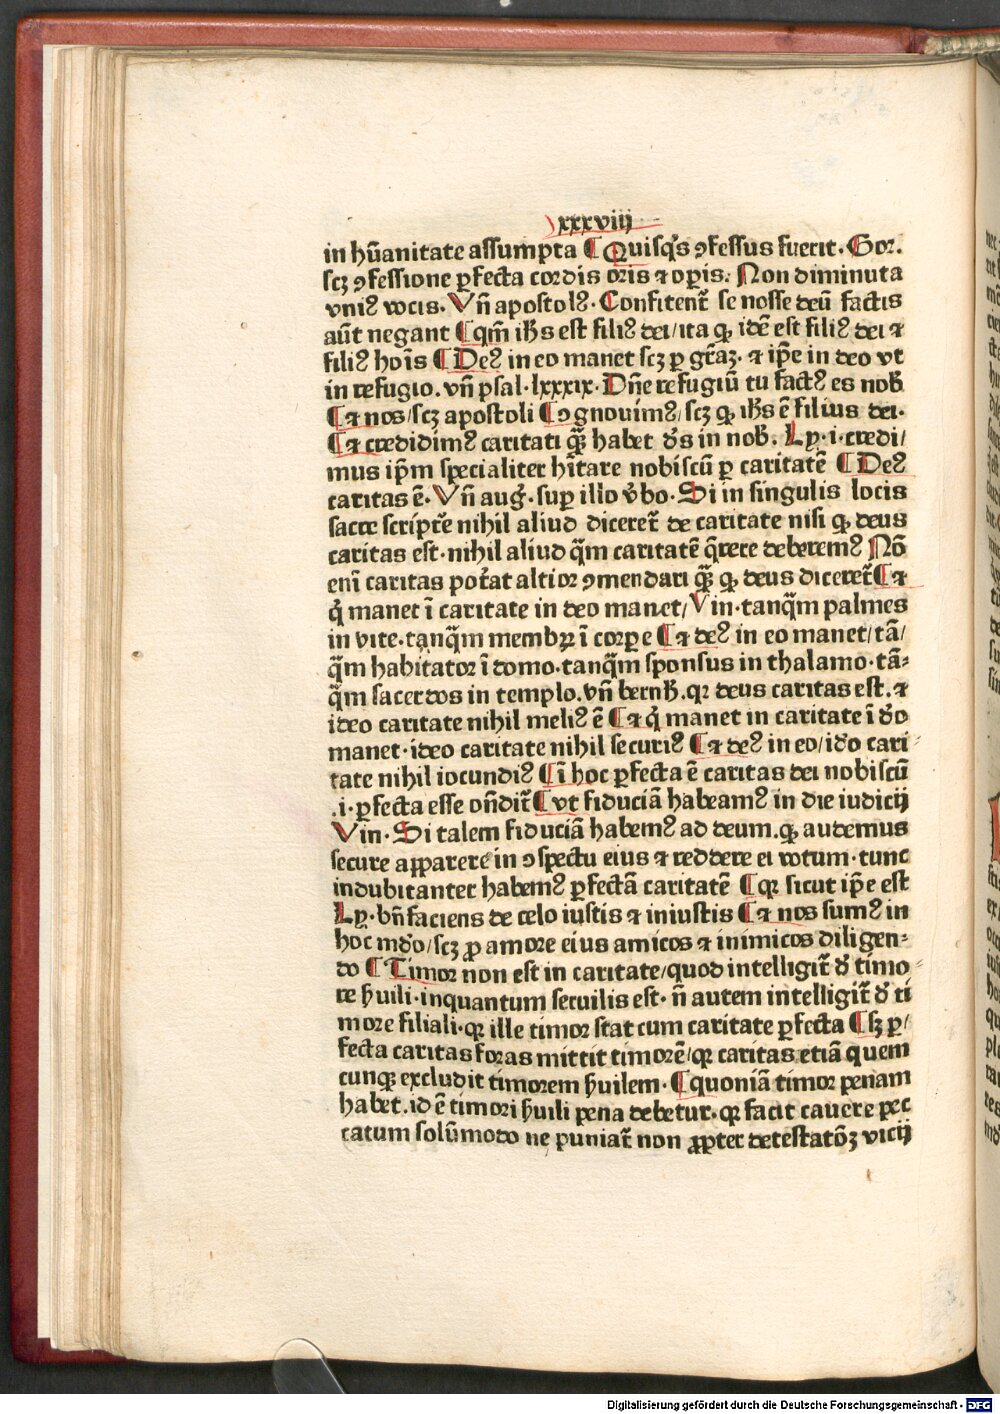 xxxviij
in hūanitate assumpta ¶ Quisq̄s ꝯfessus fuerit. Gor.
scꝫ ꝯfessione ꝑfecta cordis oris ⁊ oꝑis. Non diminuta
vniꝰ vocis. Vn̄ apostolꝰ. Confitent̄ se nosse deū factis
aūt negant ¶ qm̄ ih̄s est filiꝰ dei/ita ꝙ idē est filiꝰ dei ⁊
filiꝰ hoīs ¶ Deꝰ in eo manet scꝫ ꝑ gr̄aꝫ. ⁊ ip̄e in deo vt
in refugio. vn̄ psal. lxxxix. Dn̄e refugiū tu factꝰ es nob̄
¶ ⁊ nos/scꝫ apostoli ¶ ꝯgnouimꝰ/scꝫ ꝙ ih̄s ē filius dei.
¶ ⁊ credidimꝰ caritati quā habet d̄s in nob̄. Ly. i. credi/
mus ip̄m specialiter hītare nobiscū ꝑ caritatē ¶ Deꝰ
caritas ē. Vn̄ auḡ. suꝑ illo v̄bo. Si in singulis locis
sacre scriptr̄e nihil aliud diceret̄ de caritate nisi ꝙ deus
caritas est. nihil aliud q̄m caritatē q̄rere deberemꝰ Nō
enī caritas pot̄at altior ꝯmendari quā ꝙ deus diceret̄ ¶ ⁊
q̇ manet ī caritate in deo manet/Vin. tanq̄m palmes
in vite. tanq̄m membꝝ ī corꝑe ¶ ⁊ deꝰ in eo manet/tā/
q̄m habitator ī domo. tanq̄m sponsus in thalamo. tā⸗
q̄m sacerdos in templo. vn̄ bernh̄. qꝛ deus caritas est. ⁊
ideo caritate nihil meliꝰ ē ¶ ⁊ q̇ manet in caritate ī d̄o
manet. ideo caritate nihil securiꝰ ¶ ⁊ deꝰ in eo/id̄o cari⸗
tate nihil iocundiꝰ ¶ ī hoc ꝑfecta ē caritas dei nobiscū
.i. ꝑfecta esse on̄dit̄ ¶ vt fiduciā habeamꝰ in die iudicij
Vin. Si talem fiduciā habemꝰ ad deum. ꝙ audemus
secure apparere in ꝯspectu eius ⁊ reddere ei votum. tunc
indubitanter habemꝰ ꝑfectā caritatē ¶ qꝛ sicut ip̄e est
Ly. bn̄faciens de celo iustis ⁊ iniustis ¶ ⁊ nos sumꝰ in
hoc mūdo/scꝫ ꝓ amore eius amicos ⁊ inimicos diligen⸗
do ¶ Timor non est in caritate/quod intelligit̄ d̄ timo⸗
re ẜuili. inquantum seruilis est. n̄ autem intelligit̄ d̄ ti
more filiali. qꝛ ille timor stat cum caritate ꝑfecta ¶ sꝫ ꝑ/
fecta caritas foras mittit timorē/qꝛ caritas etiā quem
cunqꝫ excludit timorem ẜuilem. ¶ quoniā timor penam
habet. id ē timori ẜuili pena debetur. qꝛ facit cauere pec
catum solūmodo ne puniat̄ non ꝓpter detestatōꝫ vicij
Digitalisierung gefördert durch die Deutsche Forschungsgemeinschaft - DFG